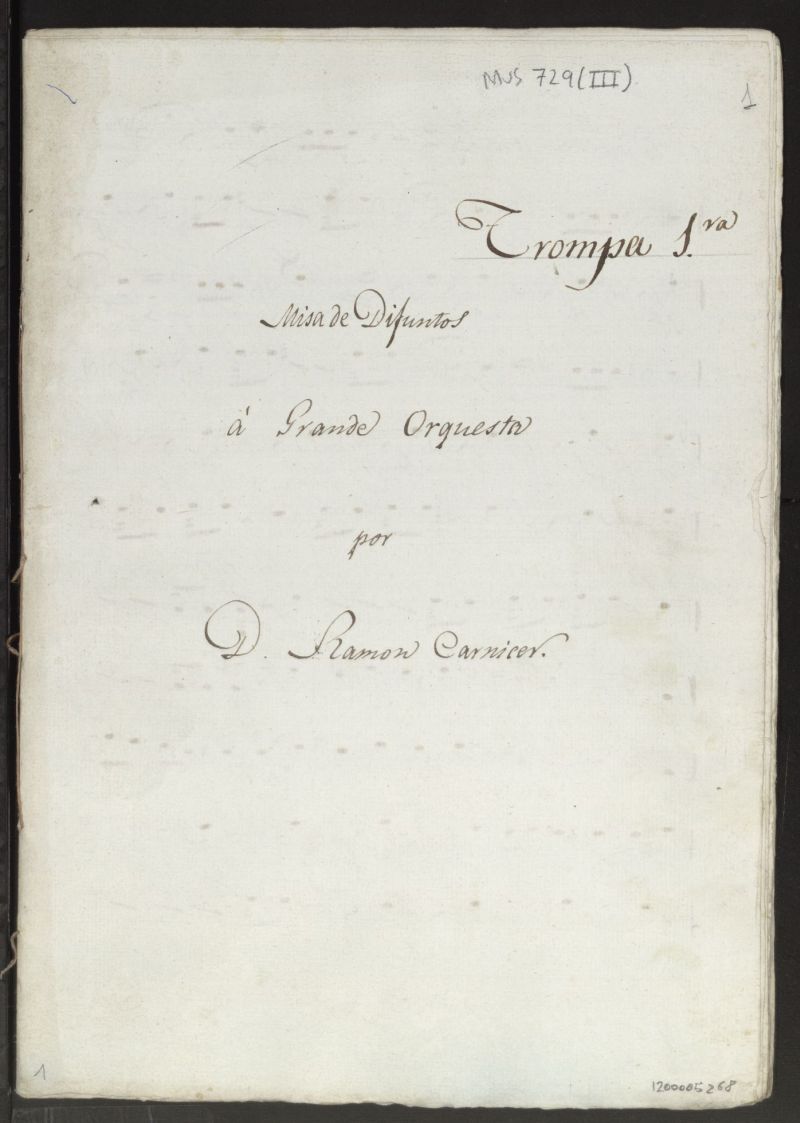 MUS 729(III)
1
Trompa 1.ra
Misa de Difuntos
á Grande Orquesta
por
D. Ramon Carnicer.
1
1200005268